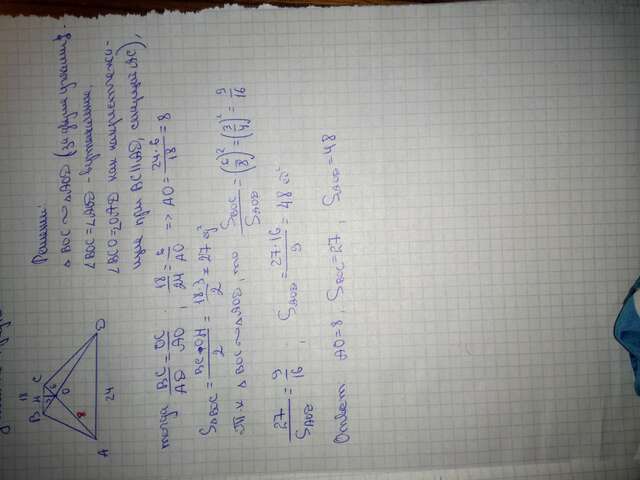 18
B H C
3 6
O
8
A 24 D
Решение:
△BOC ~ △AOD (за двумя углами).
∠BOC = ∠AOD - вертикальные,
∠BCO = ∠OAD как накрестлежа-
щие при BC || AD, секущей AC),
тогда BC/AD = OC/AO, 18/24 = 6/AO => AO = 24·6/18 = 8
S△BOC = BC·OH/2 = 18·3/2 = 27
Т.к △BOC ~ △AOD, то S_BOC/S_AOD = (6/8)² = (3/4)² = 9/16
27/S_AOD = 9/16, S_AOD = 27·16/9 = 48
Ответ AO=8, S_BOC=27, S_AOD=48